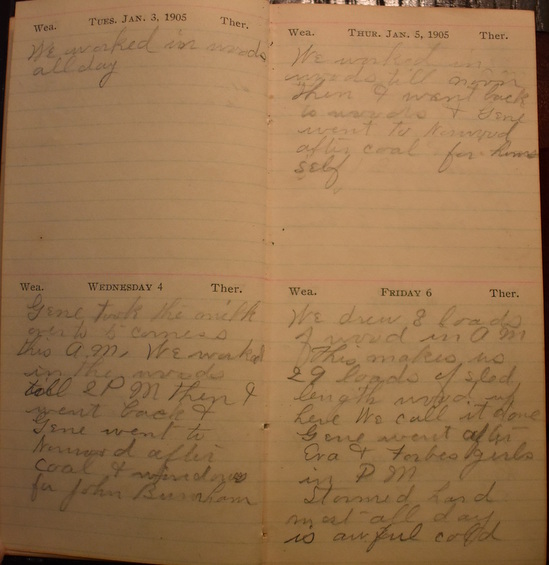 Wea. TUES. JAN. 3, 1905 Ther.
We worked in woods
all day
Wea. WEDNESDAY 4 Ther.
Gene took the milk
over to 5 corners
this A.M. We worked
in the woods
till 2 P M then I
went back &
Gene went to
Norwood after
coal & windows
for John Burnham
Wea. THUR. JAN. 5, 1905 Ther.
We worked in
woods till noon
then I went back
to woods & Gene
went to Norwood
after coal for
self
Wea. FRIDAY 6 Ther.
We drew 8 loads
of wood in A M
This makes us
29 loads of sled
length wood up
here We call it done
Gene went after
Eva & Forbes girls
in P M
Stormed hard
most all day
is awful cold